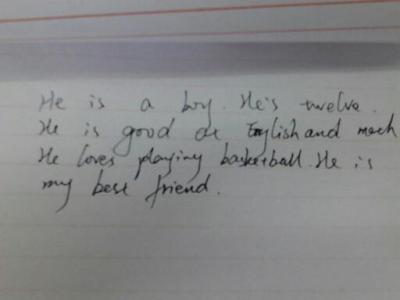 He is a boy. He's twelve.
He is good at English and math
He loves playing basketball. He is
my best friend.